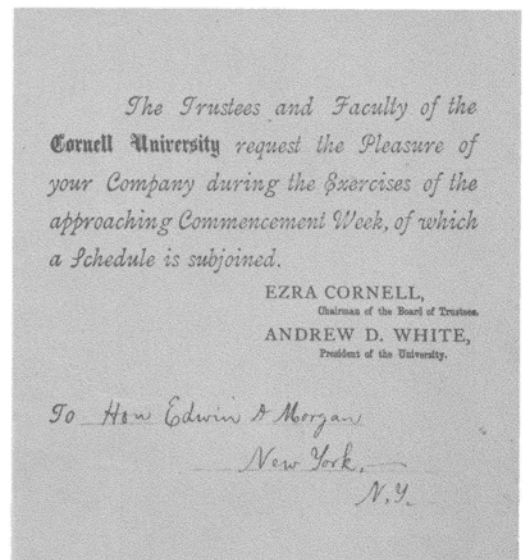 The Trustees and Faculty of the
Cornell University request the Pleasure of
your Company during the Exercises of the
approaching Commencement Week, of which
a Schedule is subjoined.
EZRA CORNELL,
Chairman of the Board of Trustees.
ANDREW D. WHITE,
President of the University.
To Hon Edwin D Morgan
New York,
N.Y.